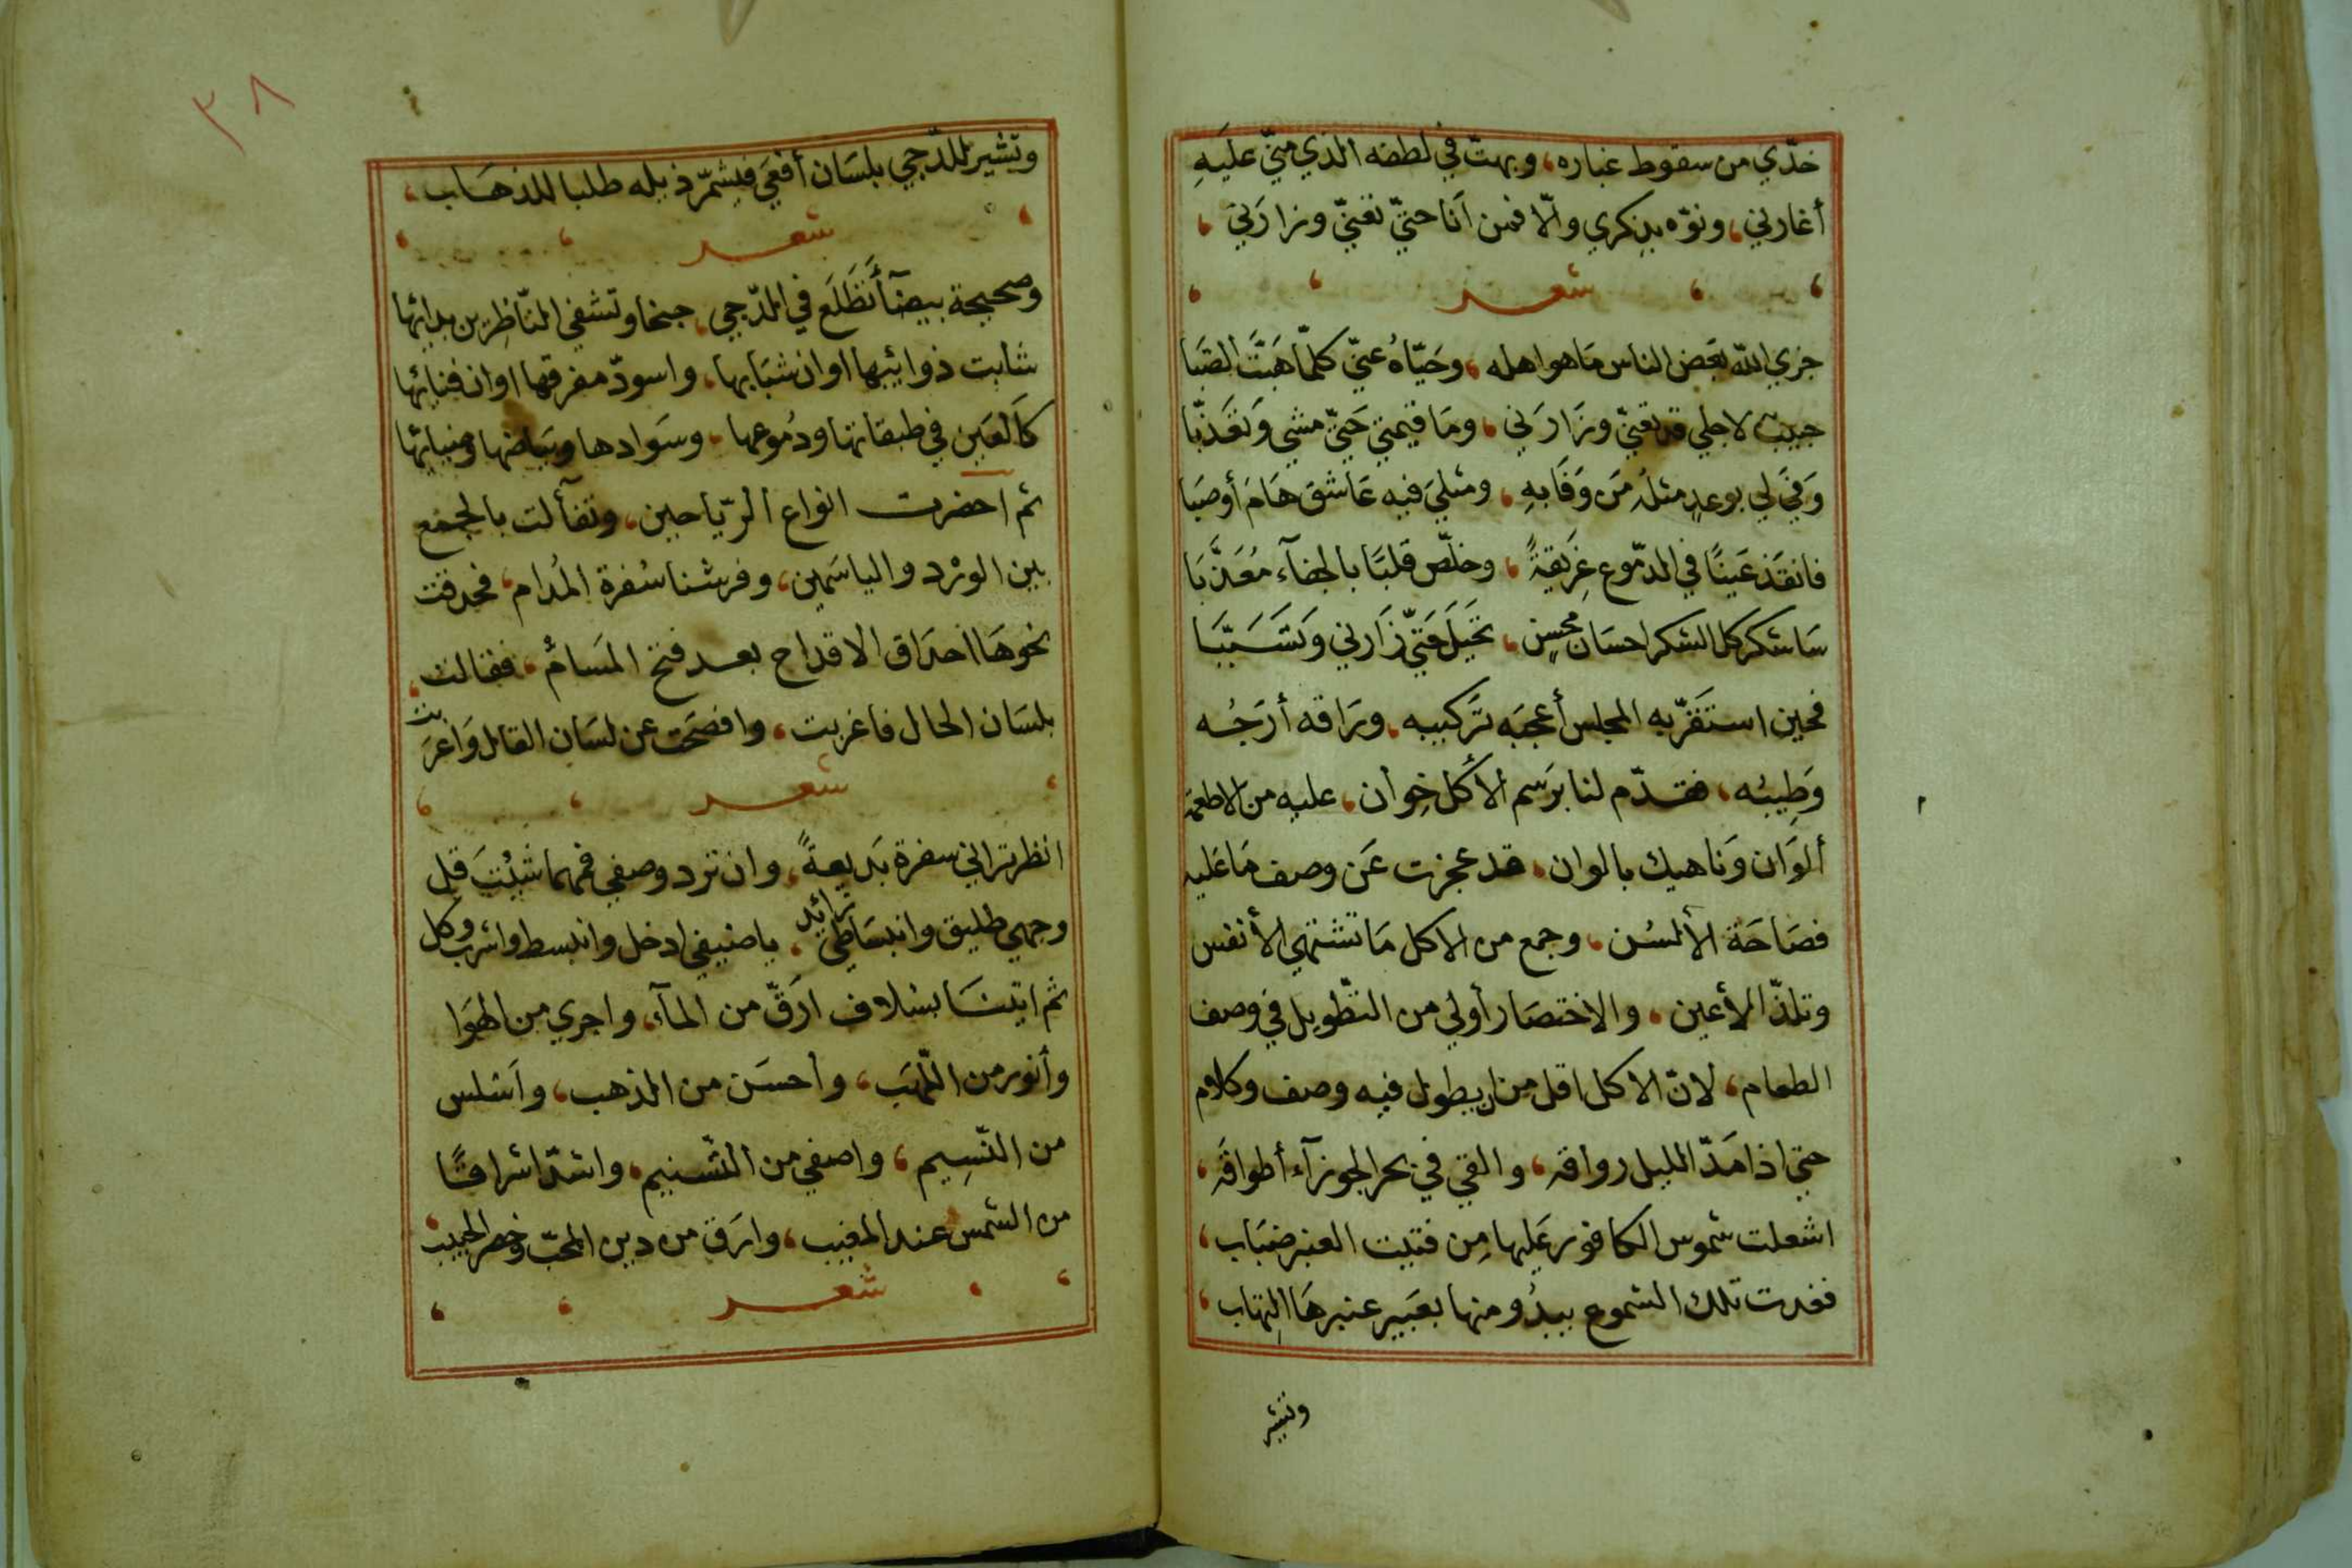 خدّي من سقوط غباره، وبهت في لطفه الذي منّي عليَه
أغارني، ونوّه بذِكري والّا فمن اَنا حتيّ تغنيّ وزارَني،
شعر
جزي اللّه بعَض الناس مَا هوا هله، وحَيّاهُ عنيّ كلمّا هَبَّت الصَبا
حبيبٌ لاجلي قد تعنيّ وزَارَني، ومَا قيمتي حَتيّ مشي وَتعَذّبا
وَفيَ لي بوعدٍ مثلُه مَن وَفَا بهِ، ومثليَ فيه عَاشق هَامَ أوصَبا
فانقَذ عَينًا في الدّموع غَرِيقةً، وخلّص قلبًا بالجفآء مُعَذَّبَا
سَاشكر كل الشكر احسَان محسِنٍ، تخَيلَ حَتيّ زَارني وَتَسَبَّبَا
فحين استَقَرّ به المجلس أعجَبَه تَركيبه، ورَاقه أرَجُه
وَطِيبُه، فقدّم لنا برَسم الأكل خِوان، عليه من الاطعمَة
ألوَان وَناهيك بالوان، قد عجزت عَن وصف مَا عَليه
فصَاحَة الألسُن، وجمع من الاكل مَا تشتهي الأنفس
وتلذّ الأعين، والاختصَار أولي من التطّويل في وصف
الطعام، لانّ الاكل اقل من ان يطول فيه وصف وكلام
حتي اذا مَدّ الليل رواقه، والقي في بحر الجوزآء أطواقَه،
اشعلت شموس الكافور عَليها مِن فتيت العنبر ضبَاب،
فغدت تلك الشموع يبدُو منها بعَبير عنبرهَا التِهاب،
وتشير
٣٨
وتشير للدّجي بلسَان أفعَي فيشمّر ذيله طلبا للذهَاب،
شعر
وصحيحة بيضآ تَطَلَع في الدّجي، جنحا وتشفي النّاظِرين بدائها
شابت ذوائبها اوان شبَابها، واسودّ مفرقها اوان فنائها
كاَلعَين في طبقاتها ودُموعها، وسَوادها وبيَاضها وضيائها
ثم احضرت انواع الرّياحين، وتفألت بالجمع
بين الورْد والياسَمين، وفرشنا سُفرة المُدام، فحدقت
نحوهَا احدَاق الاقداح بعد فتخ المسَام، فقالت،
بلسَان الحال فاغربت، وافصَحَت عن لسَان القائل وَاعرَبت
شعر
انظر تراني سفرة بَديعةً، وان ترد وصفي فمهما شيُتَ قل
وجهي طليق وانبسَاطي زائد، يا ضيفي ادخل وانبسط واشرب وكل
ثم اتينَا بسُلاف ارَقّ من المآء، واجري من الهَوَا
وأنور من اللّهَب، واحسَن من الذهب، واَسْلس
من النّسِيم، واصفي من التّسنيم، واشدّ اشراقًا
من الشمس عند المغيب، وارَق من دين المحبّ وخصر الحبيب،
شعر